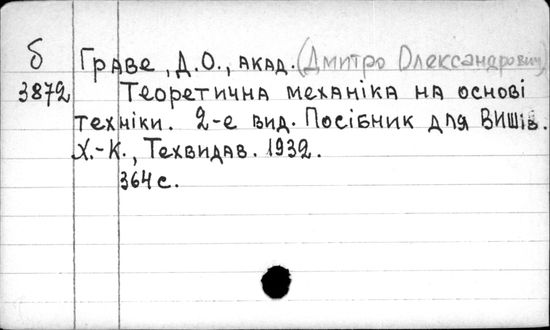 б Граве, Д.О., акад. (Дмитро Олександрович)
3872 Теоретична механіка на основі
техніки. 2-е вид. Посібник для Вишів.
Х.-К., Техвидав. 1932.
364 с.